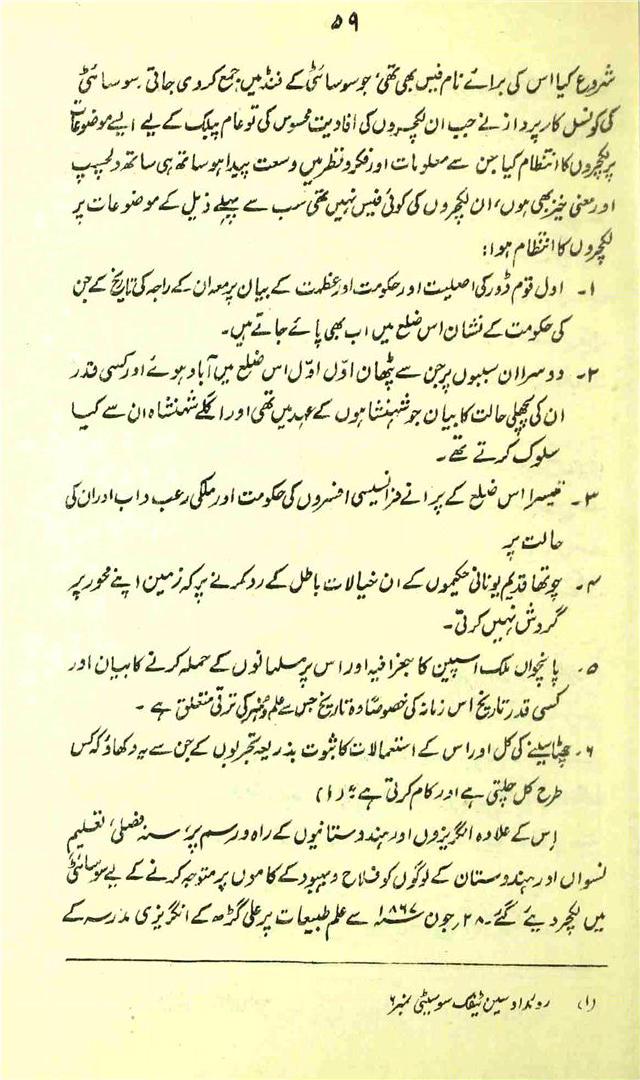 ۵۹
شروع کیا اس کی برائے نام فیس بھی تھی جو سوسائٹی کے فنڈ میں جمع کر دی جاتی۔ سوسائٹی
کی کونسل کار پرداز نے جب ان لکچروں کی افادیت محسوس کی تو عام پبلک کے لیے ایسے موضوعات
پر لکچروں کا انتظام کیا جن سے معلومات اور فکر و نظر میں وسعت پیدا ہو ساتھ ہی ساتھ دلچسپ
اور معنی خیز بھی ہوں، ان لکچروں کی کوئی فیس نہیں تھی سب سے پہلے ذیل کے موضوعات پر
لکچروں کا انتظام ہوا:
۱۔ اول قوم ڈور کی اصلیت اور حکومت اور عظمت کے بیان پر معہ ان کے راجہ کی تاریخ کے جن
کی حکومت کے نشان اس ضلع میں اب بھی پائے جاتے ہیں۔
۲۔ دوسرا ان سببوں پر جن سے پٹھان اوّل اوّل اس ضلع میں آباد ہوئے اور کسی قدر
ان کی پچھلی حالت کا بیان جو شہنشاہوں کے عہد میں تھی اور اگلے شہنشاہ ان سے کیا
سلوک کرتے تھے۔
۳۔ تیسرا اس ضلع کے پرانے فرانسیسی افسروں کی حکومت اور ملکی رعب داب اور ان کی
حالت پر
۴۔ چوتھا قدیم یونانی حکیموں کے ان خیالات باطل کے رد کرنے پر کہ زمین اپنے محور پر
گردش نہیں کرتی۔
۵۔ پانچواں ملک اسپین کا جغرافیہ اور اس پر مسلمانوں کے حملہ کرنے کا بیان اور
کسی قدر تاریخ اس زمانہ کی خصوصاً وہ تاریخ جس سے علم و ہنر کی ترقی متعلق ہے۔
۶۔ چھٹا سینے کی کل اور اس کے استعمالات کا ثبوت بذریعہ تجربوں کے جن سے یہ دکھاؤ کہ کس
طرح کل چلتی ہے اور کام کرتی ہے" (۱)
اس کے علاوہ انگریزوں اور ہندوستانیوں کے راہ و رسم پر، سنہ فصلی، تعلیم
نسواں اور ہندوستان کے لوگوں کو فلاح و بہبود کے کاموں پر متوجہ کرنے کے لیے سوسائٹی
میں لکچر دیئے گئے۔ ۲۸ جون ۱۸۶۷ء سے علم طبیعات پر علی گڑھ کے انگریزی مدرسہ کے
(۱) روئداد سین ٹیفک سوسیٹی نمبر ۶